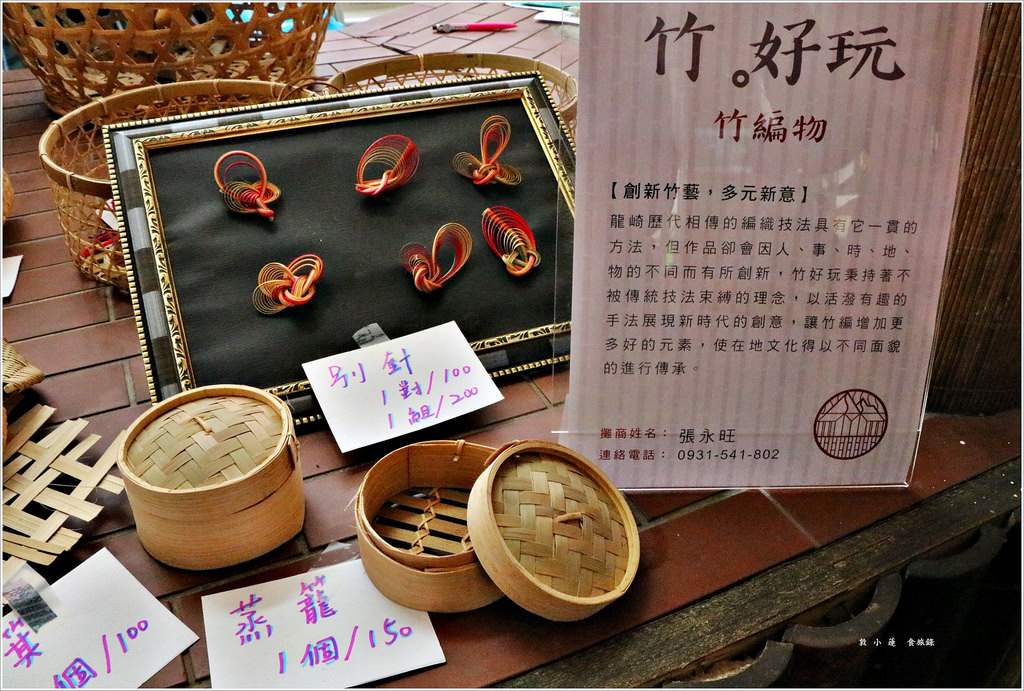 竹。好玩
竹編物
【創新竹藝，多元新意】
龍崎歷代相傳的編織技法具有它一貫的
方法，但作品卻會因人、事、時、地、
物的不同而有所創新，竹好玩秉持著不
被傳統技法束縛的理念，以活潑有趣的
手法展現新時代的創意，讓竹編增加更
多好的元素，使在地文化得以不同面貌
的進行傳承。
攤商姓名： 張永旺
連絡電話： 0931-541-802
別針
1對/100
1組/200
蒸籠
1個/150
個/100
敦小蓮 食旅錄